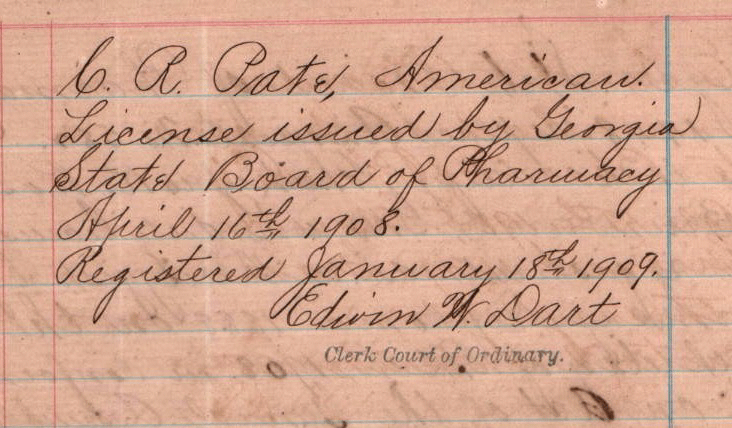 C. R. Pate, American.
License issued by Georgia
State Board of Pharmacy
April 16th, 1908.
Registered January 18th, 1909.
Edwin W. Dart
Clerk Court of Ordinary.